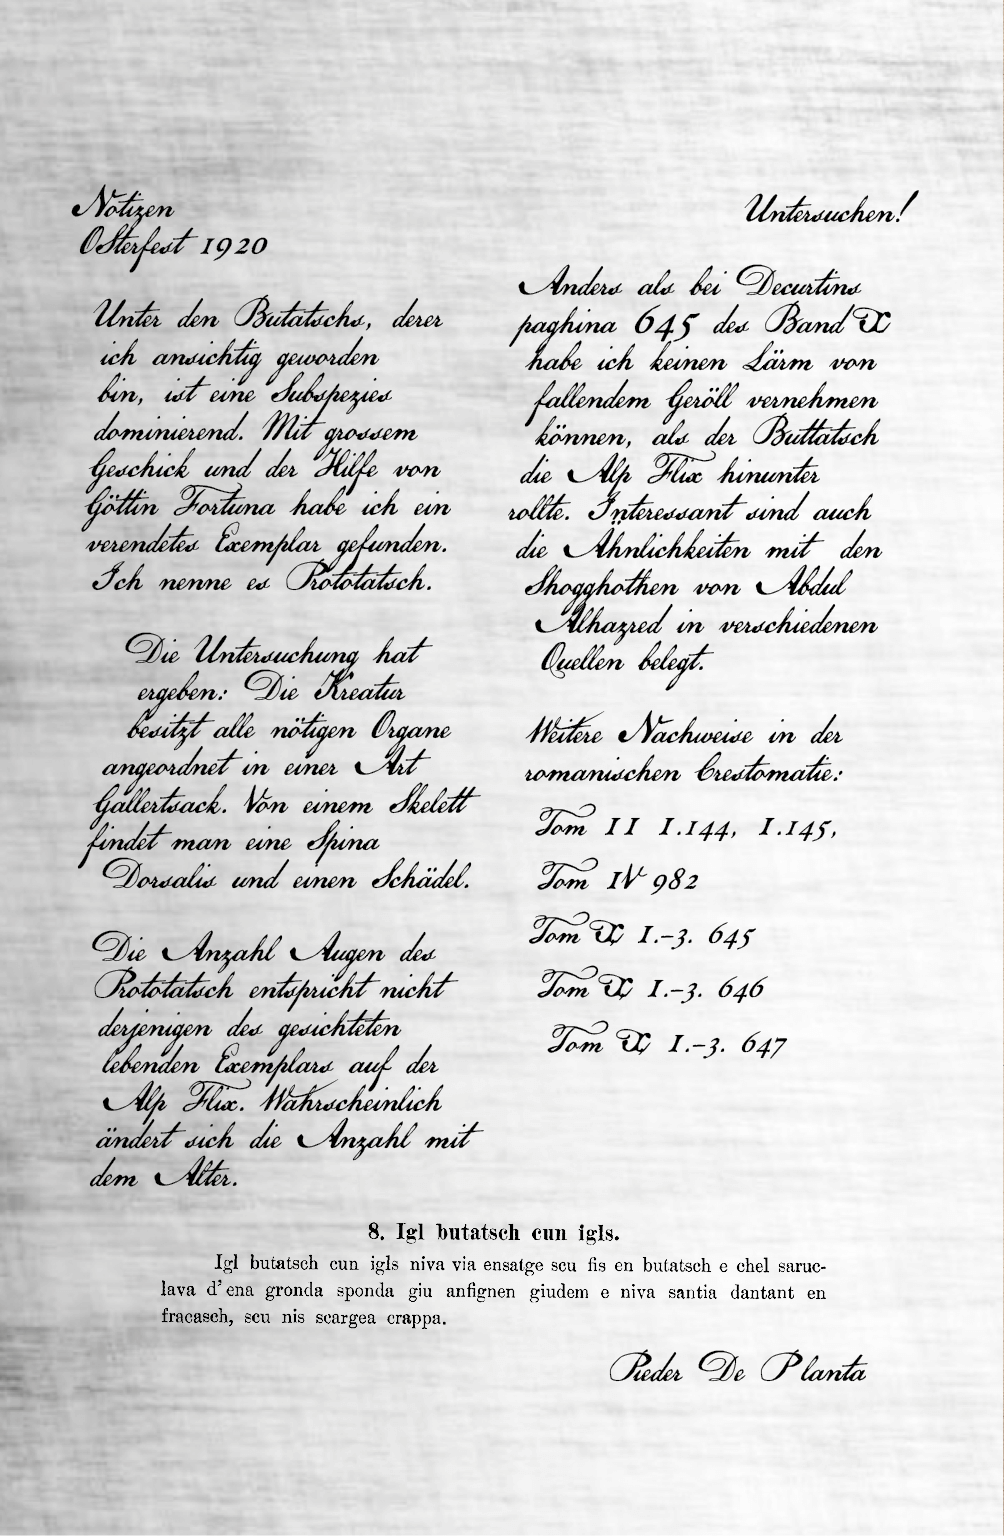 Notizen
Osterfest 1920
Unter den Butatschs, derer
ich ansichtig geworden
bin, ist eine Subspezies
dominierend. Mit grossem
Geschick und der Hilfe von
Göttin Fortuna habe ich ein
verendetes Exemplar gefunden.
Ich nenne es Prototatsch.
Die Untersuchung hat
ergeben: Die Kreatur
besitzt alle nötigen Organe
angeordnet in einer Art
Gallertsack. Von einem Skelett
findet man eine Spina
Dorsalis und einen Schädel.
Die Anzahl Augen des
Prototatsch entspricht nicht
derjenigen des gesichteten
lebenden Exemplars auf der
Alp Flix. Wahrscheinlich
ändert sich die Anzahl mit
dem Alter.
Untersuchen!
Anders als bei Decurtins
paghina 645 des Band X
habe ich keinen Lärm von
fallendem Geröll vernehmen
können, als der Buttatsch
die Alp Flix hinunter
rollte. Interessant sind auch
die Ähnlichkeiten mit den
Shogghothen von Abdul
Alhazred in verschiedenen
Quellen belegt.
Weitere Nachweise in der
romanischen Crestomatie:
Tom II I.144, I.145,
Tom IV 982
Tom X I.-3. 645
Tom X I.-3. 646
Tom X I.-3. 647
8. Igl butatsch cun igls.
Igl butatsch cun igls niva via ensatge scu fis en butatsch e chel saruc-
lava d'ena gronda sponda giu anfignen giudem e niva santia dantant en
fracasch, scu nis scargea crappa.
Pieder De Planta